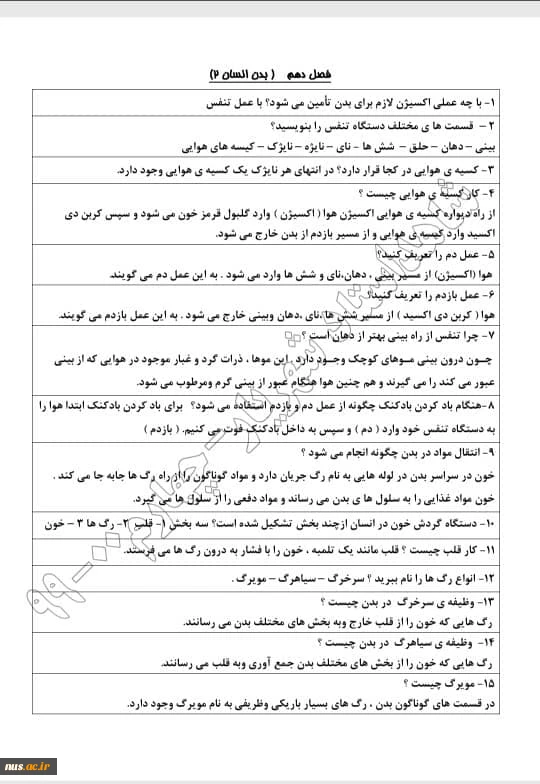 فصل دهم ( بدن انسان ۲)
۱- با چه عملی اکسیژن لازم برای بدن تأمین می شود؟ با عمل تنفس
۲ – قسمت ها ی مختلف دستگاه تنفس را بنویسید؟
بینی – دهان – حلق – شش ها - نای – نایژه – نایژک – کیسه های هوایی
۳- کسیه ی هوایی در کجا قرار دارد؟ در انتهای هر نایژک یک کسیه ی هوایی وجود دارد.
۴- کار کسیه ی هوایی چیست ؟
از راه دیواره کسیه ی هوایی اکسیژن هوا ( اکسیژن ) وارد گلبول قرمز خون می شود و سپس کربن دی
اکسید وارد کیسه ی هوایی و از مسیر بازدم از بدن خارج می شود.
۵- عمل دم را تعریف کنید؟
هوا (اکسیژن) از مسیر بینی ، دهان،نای و شش ها وارد می شود . به این عمل دم می گویند.
۶- عمل بازدم را تعریف کنید؟
هوا ( کربن دی اکسید ) از مسیر شش ها ،نای ،دهان وبینی خارج می شود . به این عمل بازدم می گویند.
۷- چرا تنفس از راه بینی بهتر از دهان است ؟
چـون درون بینی مـوهای کوچک وجـود دارد . این موها ، ذرات گرد و غبار موجود در هوایی که از بینی
عبور می کند را می گیرند و هم چنین هوا هنگام عبور از بینی گرم ومرطوب می شود.
۸-هنگام باد کردن بادکنک چگونه از عمل دم و بازدم استفاده می شود؟ برای باد کردن بادکنک ابتدا هوا را
به دستگاه تنفس خود وارد ( دم ) و سپس به داخل بادکنک فوت می کنیم. ( بازدم )
۹- انتقال مواد در بدن چگونه انجام می شود ؟
خون در سراسر بدن در لوله هایی به نام رگ جریان دارد و مواد گوناگون را از راه رگ ها جابه جا می کند .
خون مواد غذایی را به سلول ها ی بدن می رساند و مواد دفعی را از سلول ها می گیرد.
۱۰- دستگاه گردش خون در انسان ازچند بخش تشکیل شده است؟ سه بخش ۱- قلب ۲- رگ ها ۳ - خون
۱۱- کار قلب چیست ؟ قلب مانند یک تلمبه ، خون را با فشار به درون رگ ها می فرستد.
۱۲- انواع رگ ها را نام ببرید ؟ سرخرگ – سیاهرگ – مویرگ .
۱۳- وظیفه ی سرخرگ در بدن چیست ؟
رگ هایی که خون را از قلب خارج وبه بخش های مختلف بدن می رسانند.
۱۴- وظیفه ی سیاهرگ در بدن چیست ؟
رگ هایی که خون را از بخش های مختلف بدن جمع آوری وبه قلب می رسانند.
۱۵- مویرگ چیست ؟
در قسمت های گوناگون بدن ، رگ های بسیار باریکی وظریفی به نام مویرگ وجود دارد.
چهارم ۰۰-۹۹
nus.ac.ir